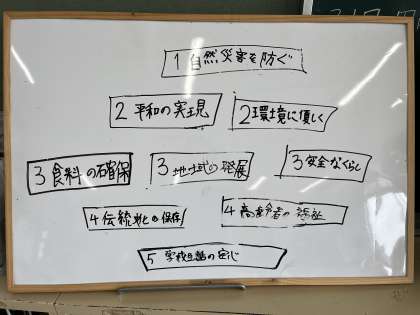 1 自然災害を防ぐ
2 平和の実現
2 環境に優しく
3 食料の確保
3 地域の発展
3 安全なくらし
4 伝統の保存
4 高齢者の福祉
5 学校生活の安心